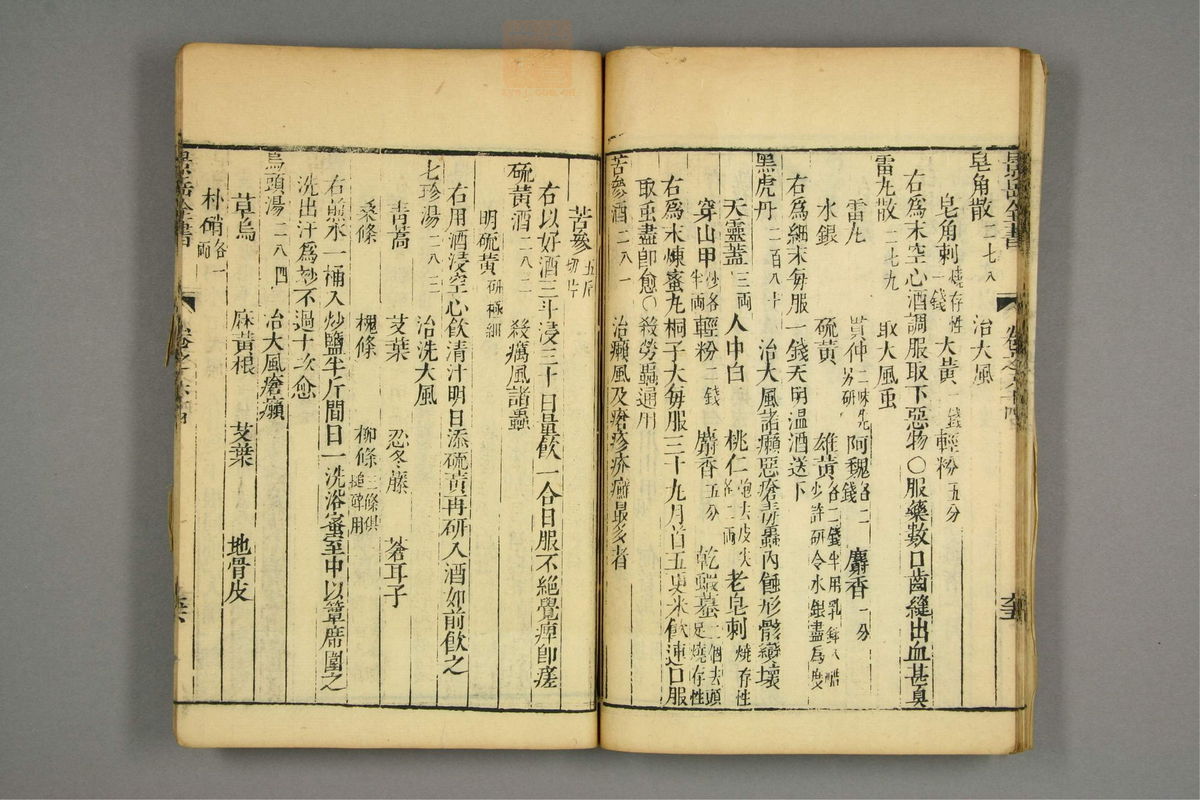 景岳全書
皂角散二七八 治大風
皂角刺燒存性一錢 大黃一錢 輕粉五分
右為末空心酒調服取下惡物〇服藥數口齒縫出血甚臭
雷丸散二七九 取大風虫
雷丸 貫仲二味先另研 阿魏各二錢 麝香一分
水銀 硫黃 雄黃各二錢半用乳鉢入醋少許研令水銀盡為度
右為細末每服一錢天明溫酒送下
黑虎丹二百八十 治大風諸癩惡瘡毒蟲內蝕形骸變壞
天靈蓋三兩 人中白 桃仁炮去皮尖各二兩 老皂刺燒存性
穿山甲炒各半兩 輕粉二錢 麝香五分 乾蝦蟇二個去頭足燒存性
右為末煉蜜丸桐子大每服三十九月首五更米飲連口服
取虫盡即愈〇殺勞蟲通用
苦參酒二八一 治癩風及瘡疹疥癬最多者
苦參五斤切片
右以好酒三斗浸三十日量飲一合日服不絕覺痺即瘥
硫黃酒二八二 殺癘風諸蟲
明硫黃研極細
右用酒浸空心飲清汁明日添硫黃再研入酒如前飲之
七珍湯二八三 治洗大風
青蒿 艾葉 忍冬藤 蒼耳子
桑條 槐條 柳條三條俱搥碎用
右煎水一桶入炒鹽半斤間日一洗浴蜜至中以簟席圍之
洗出汗為妙不過十次愈
烏頭湯二八四 治大風瘡癩
草烏 麻黃根 艾葉 地骨皮
朴硝各一兩
景岳全書